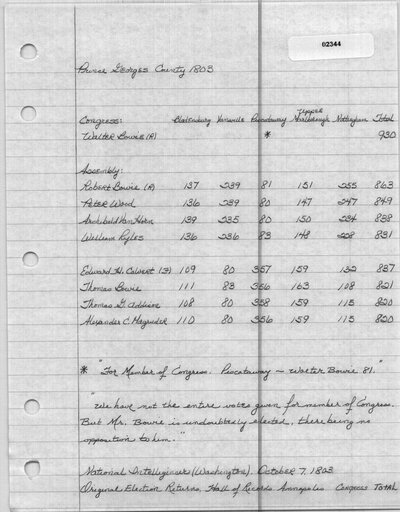 02344
Prince Georges County 1803
Upper
Congress: Bladensburg Vansville Piscataway Marlborough Nottingham Total
Walter Bowie (R) * 930
Assembly:
Robert Bowie (R) 137 239 81 151 255 863
Peter Wood 136 239 80 147 247 849
Archibald Van Horn 139 235 80 150 234 838
William Lyles 136 236 83 148 228 831
Edward H. Calvert (F) 109 80 357 159 132 837
Thomas Bowie 111 83 356 163 108 821
Thomas G. Addison 108 80 358 159 115 820
Alexander C. Magruder 110 80 356 159 115 820
* "For Member of Congress. Piscataway – Walter Bowie 81."
"We have not the entire votes given for member of Congress.
But Mr. Bowie is undoubtedly elected, there being no
opposition to him."
National Intelligencer (Washington). October 7, 1803
Original Election Returns, Hall of Records Annapolis. Congress Total